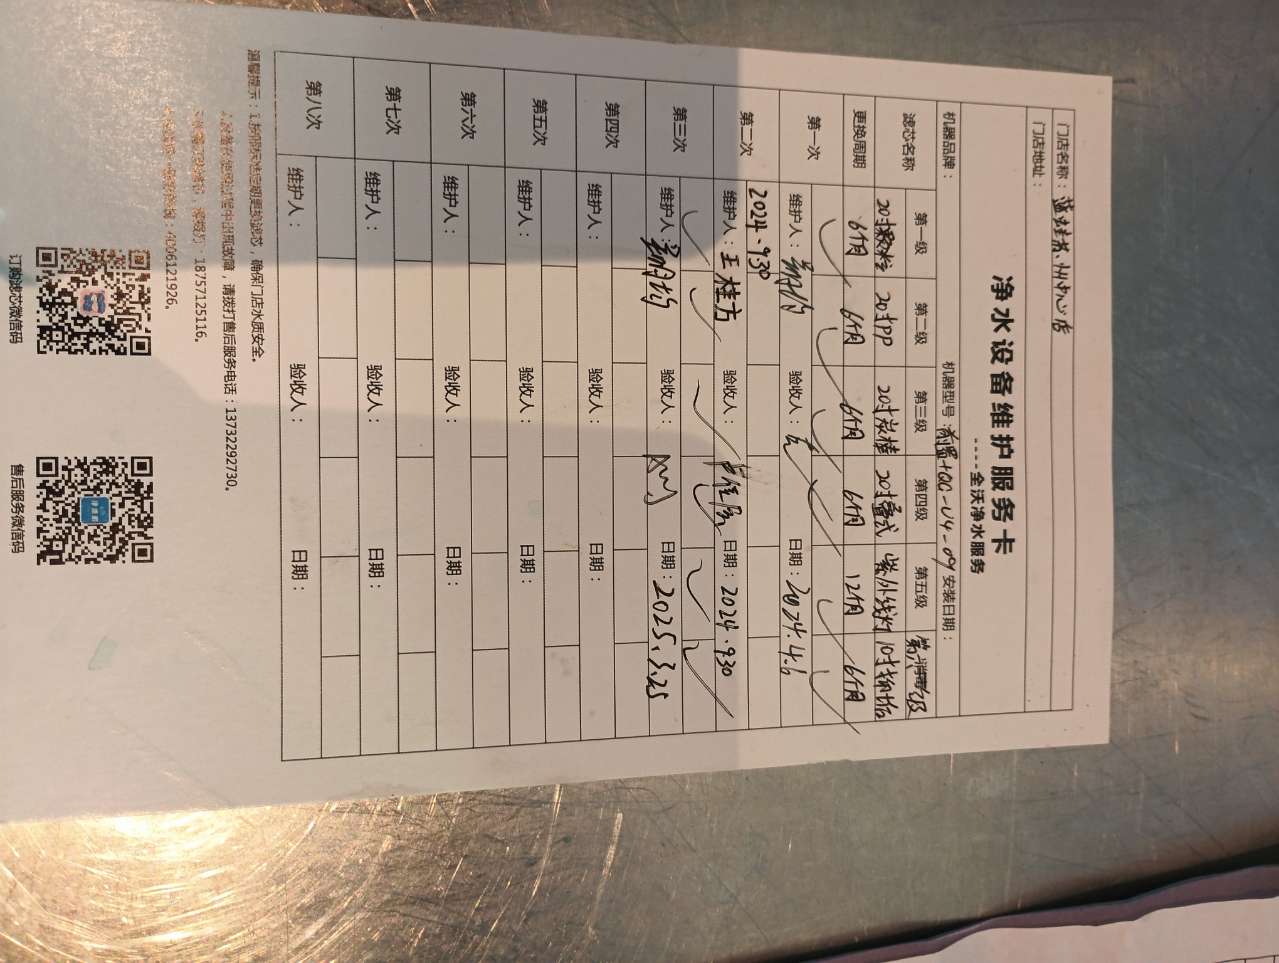 净水设备维护服务卡
----全沃净水服务
门店名称：
门店地址：
机器品牌： 机器型号： 安装日期：
滤芯名称 第一级 第二级 第三级 第四级 第五级 第六级
20寸 20寸PP 20寸炭棒 20寸 紫外线灯 10寸
更换周期 6个月 6个月 6个月 6个月 12个月 6个月
第一次
维护人： 验收人： 日期：2024.4.6
第二次 2024.9.30
维护人：王桂方 验收人： 日期：2024.9.30
第三次
维护人： 验收人： 日期：2025.3.25
第四次
维护人： 验收人： 日期：
第五次
维护人： 验收人： 日期：
第六次
维护人： 验收人： 日期：
第七次
维护人： 验收人： 日期：
第八次
维护人： 验收人： 日期：
温馨提示：1.按照标准定期更换滤芯，确保门店水质安全。
2.设备在使用过程中出现故障，请拨打售后服务电话：13732292730。
18757125116。
4006121926。
订购滤芯微信码 售后服务微信码